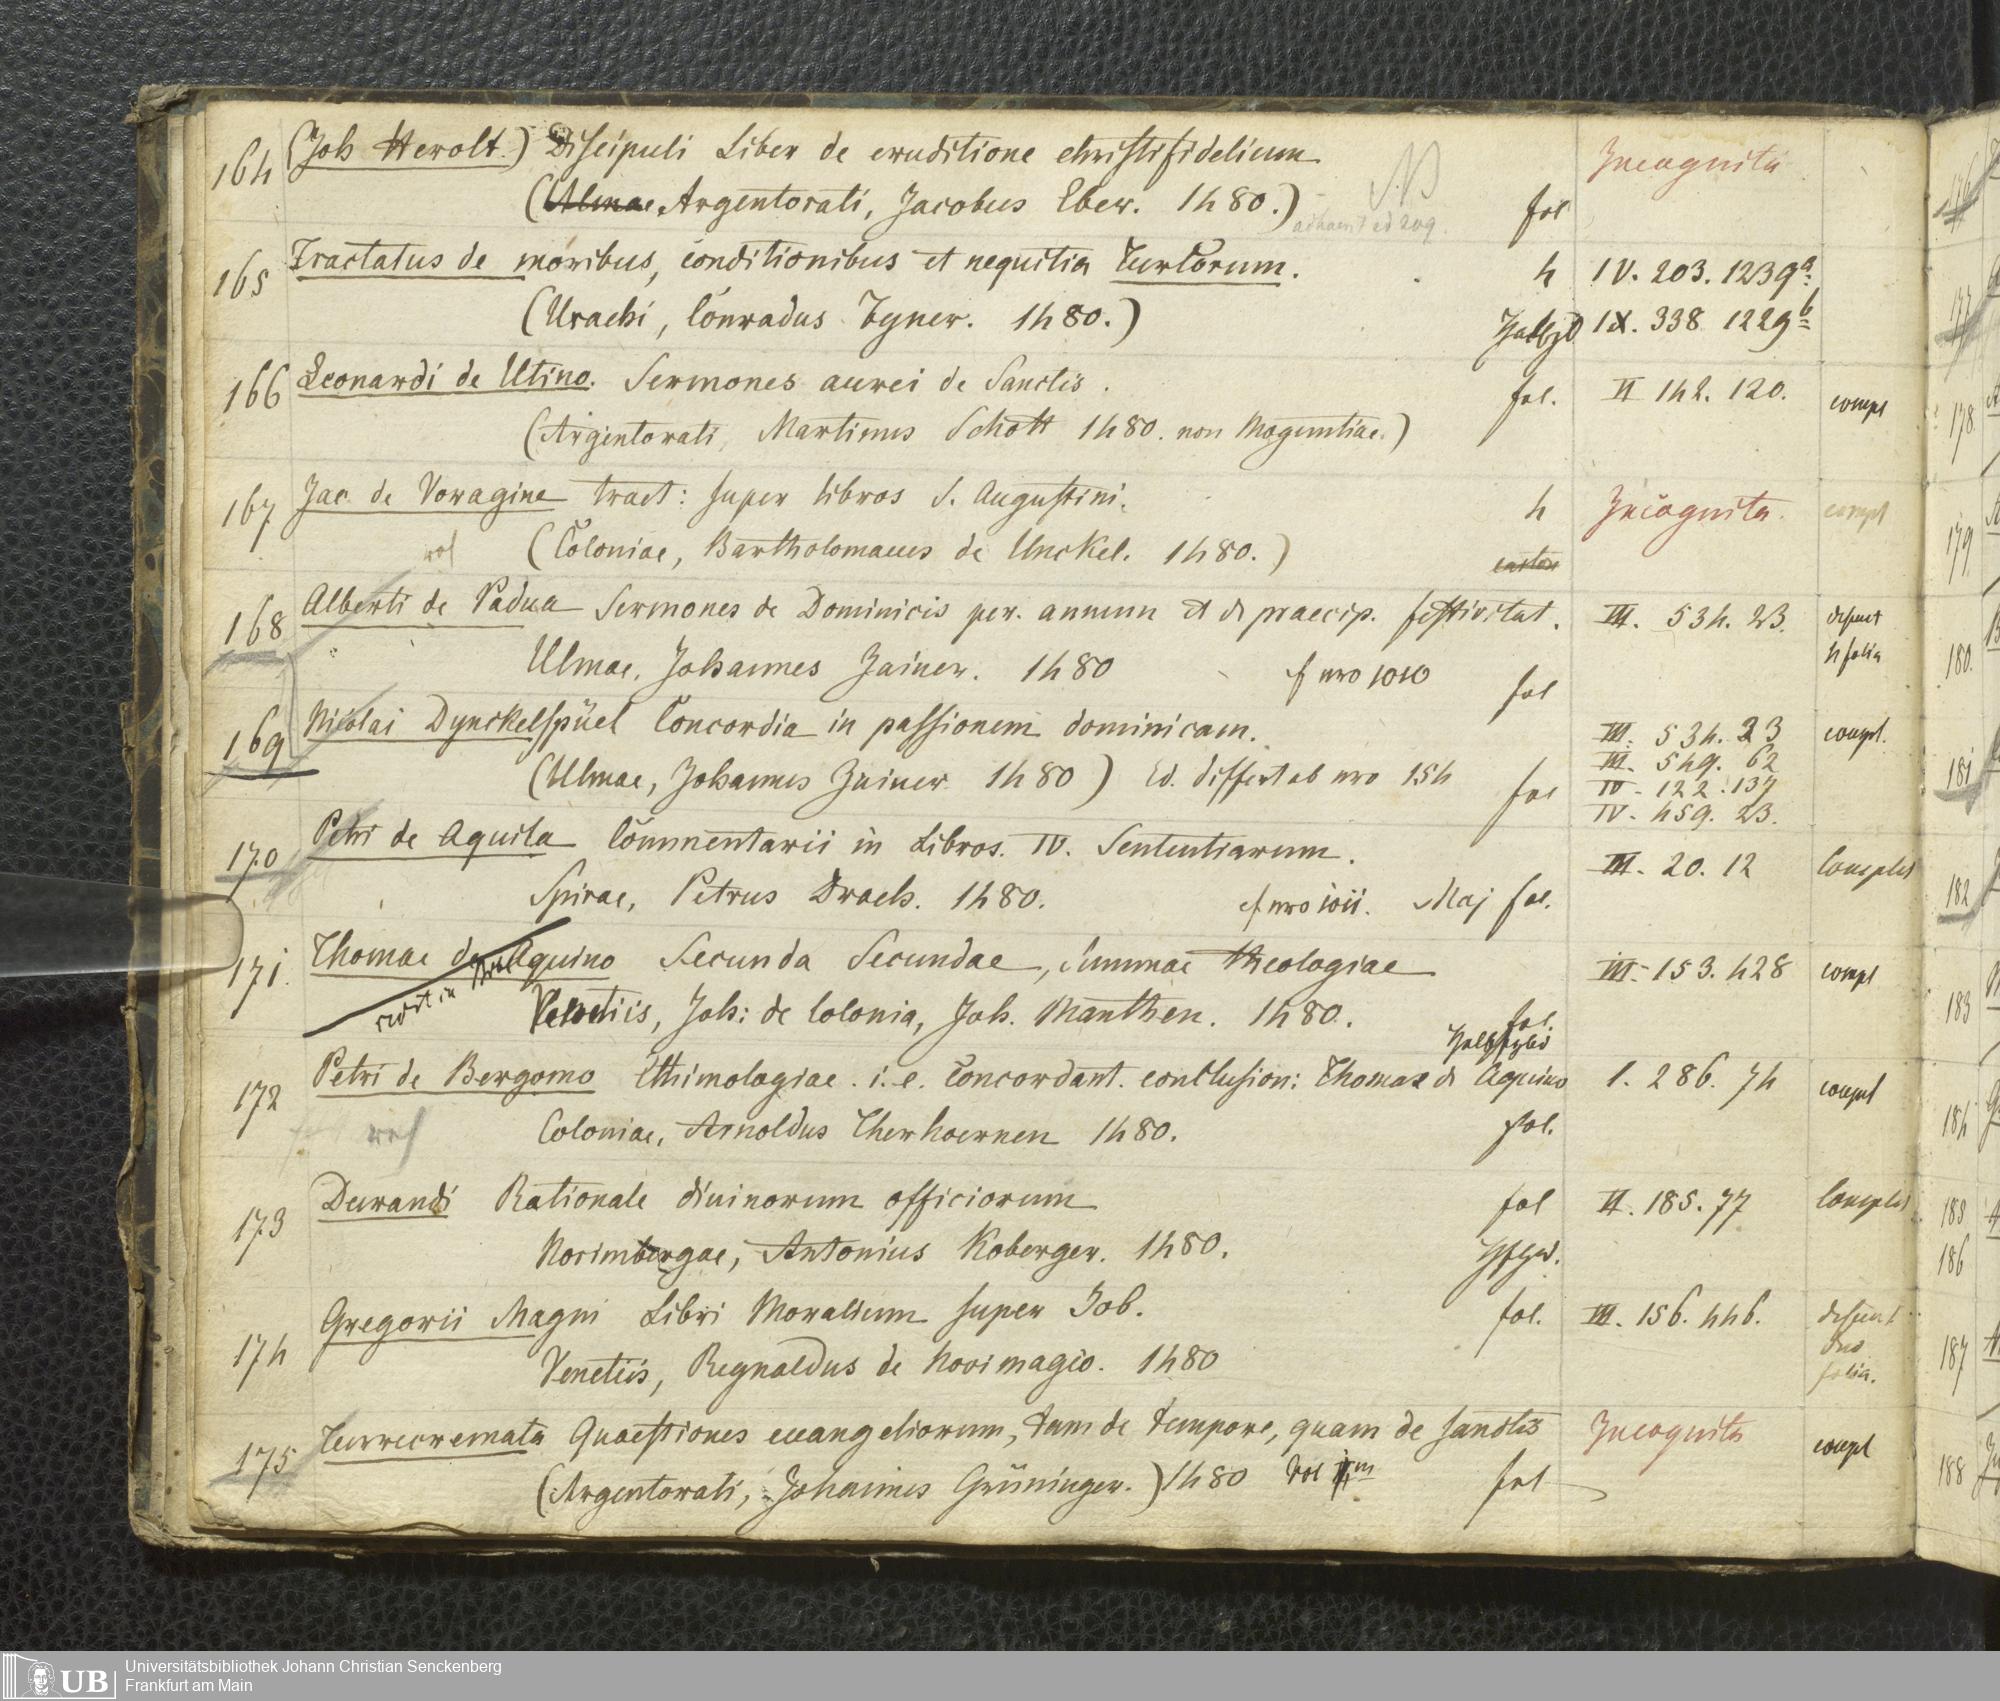 164 (Joh Herolt.) Discipuli Liber de eruditione christifidelium Incognita
(Ulmae Argentorati, Jacobus Eber. 1480.) fol
NB
adhaeret ad 209.
165 Tractatus de moribus, conditionibus et nequitia Turcorum. 4 IV. 203. 1239a
(Urachi, Conradus Fyner. 1480.) IX. 338 1229b
166 Leonardi de Utino. Sermones aurei de Sanctis. fol. II 142. 120. compl
(Argentorati, Martinus Schott 1480. non Moguntiae.)
167 Jac de Voragine tract: super libros S. Augustini. 4 Incognita. compl
(Coloniae, Bartholomaeus de Unckel. 1480.)
168 Alberti de Padua Sermones de Dominicis per. annum et de praecip. festivitat. III. 534. 23. desunt
4 folia
Ulmae, Johannes Zainer. 1480 cf nro 1010 fol
169 Nicolai Dynckelspüel Concordia in passionem dominicam. III. 534. 23 compl.
(Ulmae, Johannes Zainer 1480) Ed. differt ab nro 154 fol III. 549. 62
IV. 122. 137
IV. 459. 23.
170 Petri de Aquila Commentarii in Libros. IV. Sententiarum. III. 20. 12 Complet
Spirae, Petrus Drach. 1480. cf nro 1011. Maj fol.
171. Thomae de Aquino Secunda Secundae, Summae theologiae III. 153. 428 compl
Venetiis, Joh: de Colonia, Joh. Manthen. 1480. fol.
172 Petri de Bergomo Ethimologiae. i. e. Concordant. conclusion: Thomae de Aquino I. 286. 74 compl
Coloniae, Arnoldus Therhoernen 1480. fol.
173 Durandi Rationale divinorum officiorum fol II. 185. 77 Complet
Norimbergae, Antonius Koberger. 1480.
174 Gregorii Magni Libri Moralium super Job. fol. III. 156. 446. desunt
duo
folia.
Venetiis, Reynaldus de Novimagio. 1480
175 Turrecremata Quaestiones euangeliorum, tam de tempore, quam de sanctis Incognita compl
(Argentorati, Johannes Grüninger.) 1480 vol fol
176
177
178
179
180
181
182
183
184
185
186
187
188
UB Universitätsbibliothek Johann Christian Senckenberg
Frankfurt am Main